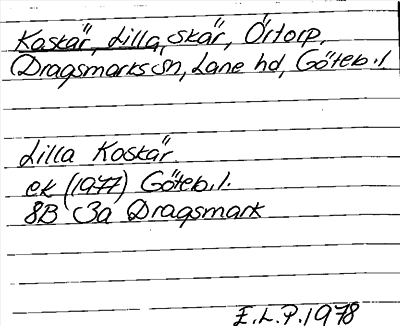 Koskär, Lilla, skär, Örtorp,
Dragsmarks sn, Lane hd, Göteb. l.
Lilla Koskär
ek (1977) Göteb. l.
8B 3a Dragsmark
E.L.P. 1978